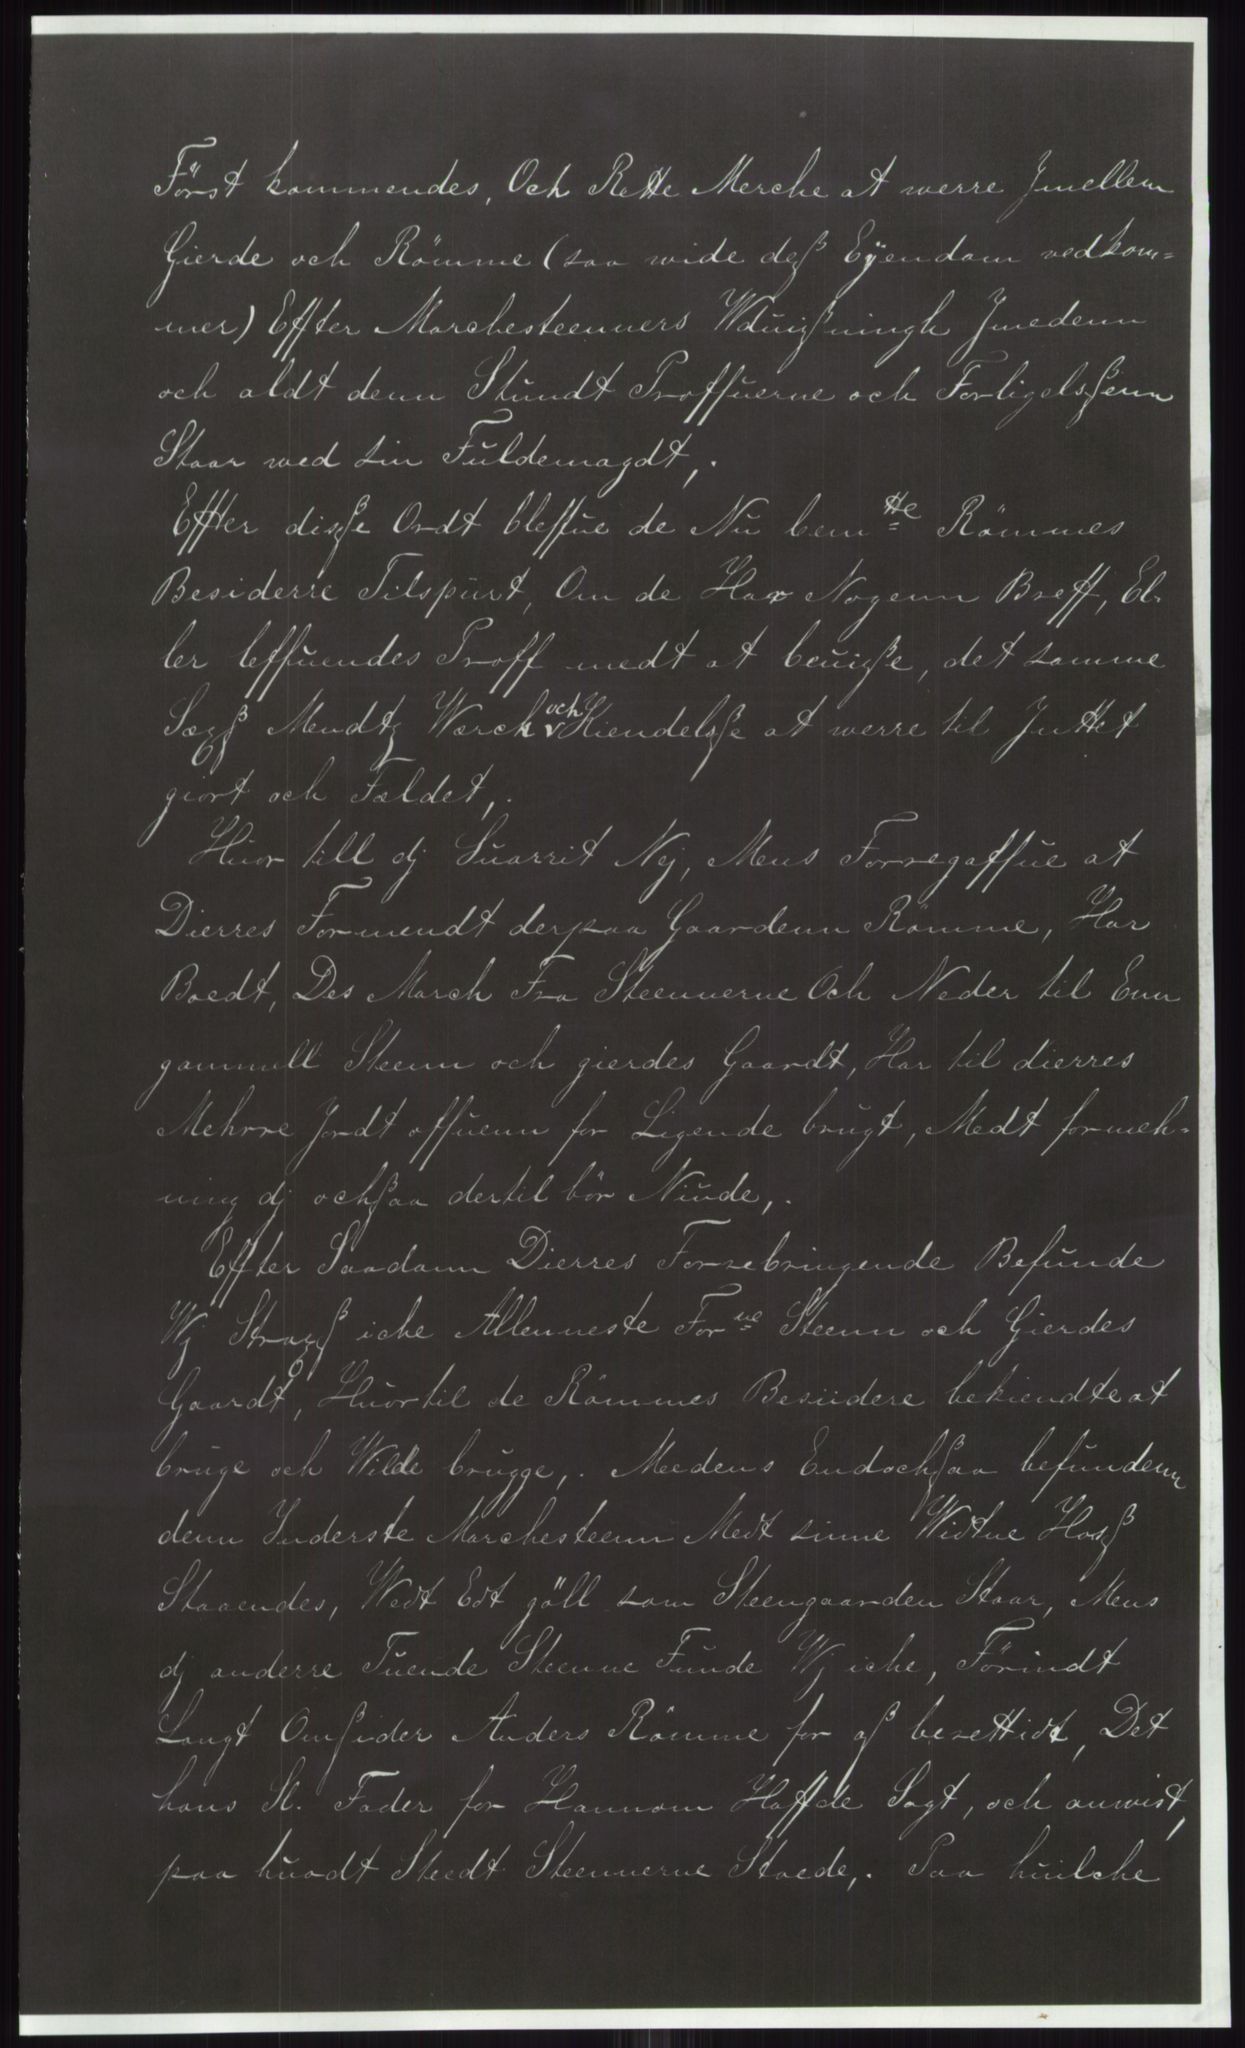 Först kommendes, Och Rette Merche at werre Jmellem
Gierde och Römme (saa wide deß Eÿendom vedkom=
mer) Effter Marchesteenners Wduißningh Jmedenn
och aldt denn Stundt Proffuerne och Forligelsßenn
Staar wed sin Fuldemagdt,.
Effter disße Ordt bleffue de Nu bem tte Römmes
Besiderre Tilspurt, Om de Har Nogenn Breff, El-
ler leffuendes Proff medt at beuiße, det samme
Sexß Mendtz Werck och Kiendelsße at werre til Jnttet
giort och Fældet,.
Huor till dj Suarrit Nej, Mens Forregaffue at
Dierres Formendt der paa Gaardenn Römme, Har
Boedt, Des March Fra Steennerne Och Neder til Enn
gammell Steenn och gierdes Gaardt, Har til dierres
Mehrre Jordt offuenn for Ligende brugt, Medt formeh-
ning dj ochßaa dertil bör Niude,.
Effter Saadann Dierres Forrebringende Befunde
Wj Straxß iche Allenneste For ne Steenn och Gierdes
Gaardt, Huortil de Römmes Besiidere bekiendte at
bruge och Wilde brugge,. Meedens Endochßaa befundenn
denn Ynderste Marchesteenn Medt sinne Widtne Hosß
Staaendes, Wedt Edt göll som Steengaarden Staar, Mens
dj anderre Tuende Steenne Funde Wj iche, Förindt
Langt Omßider Anders Römme for oß berettidt, Det
hans Sl. Fader for Hannom Haffde Sagt, och anwist,
paa huadt Stedt Steennerne Stoede,. Paa huilche